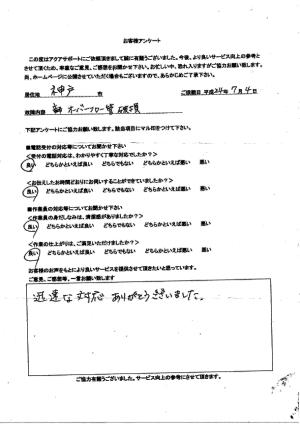 お客様アンケート
この度はアクアサポートにご依頼頂きまして誠に有難うございました。今後、より良いサービス向上の参考と
させて頂くため、率直なご意見、ご感想をお聞かせ下さい。お忙しい中、恐れ入りますがご協力お願い致します。
尚、ホームページに公開させていただく場合もございますので、あらかじめご了承下さい。
居住地 神戸 市 ご依頼日 平成24年 7月 4日
故障内容 オーバーフロー管 破損
下記アンケートにご協力お願い致します。該当項目にマル印をつけて下さい。
■電話受付の対応等についてお聞かせ下さい
<受付の電話対応は、わかりやすく丁寧な対応でしたか?>
良い どちらかといえば良い どちらでもない どちらかといえば悪い 悪い
<お伝えしたお時間どおりにお伺いすることができていましたか?>
良い どちらかといえば良い どちらでもない どちらかといえば悪い 悪い
■作業員の対応等についてお聞かせ下さい
<作業員の身だしなみは、清潔感がありましたか?>
良い どちらかといえば良い どちらでもない どちらかといえば悪い 悪い
<作業の仕上がりは、ご満足いただけましたか?>
良い どちらかといえば良い どちらでもない どちらかといえば悪い 悪い
お客様のお声をもとにより良いサービスを提供させて頂きたいと思っています。
ご意見、ご感想等、一言お願い致します
迅速な対応 ありがとうございました。
ご協力有難うございました。サービス向上の参考にさせて頂きます。